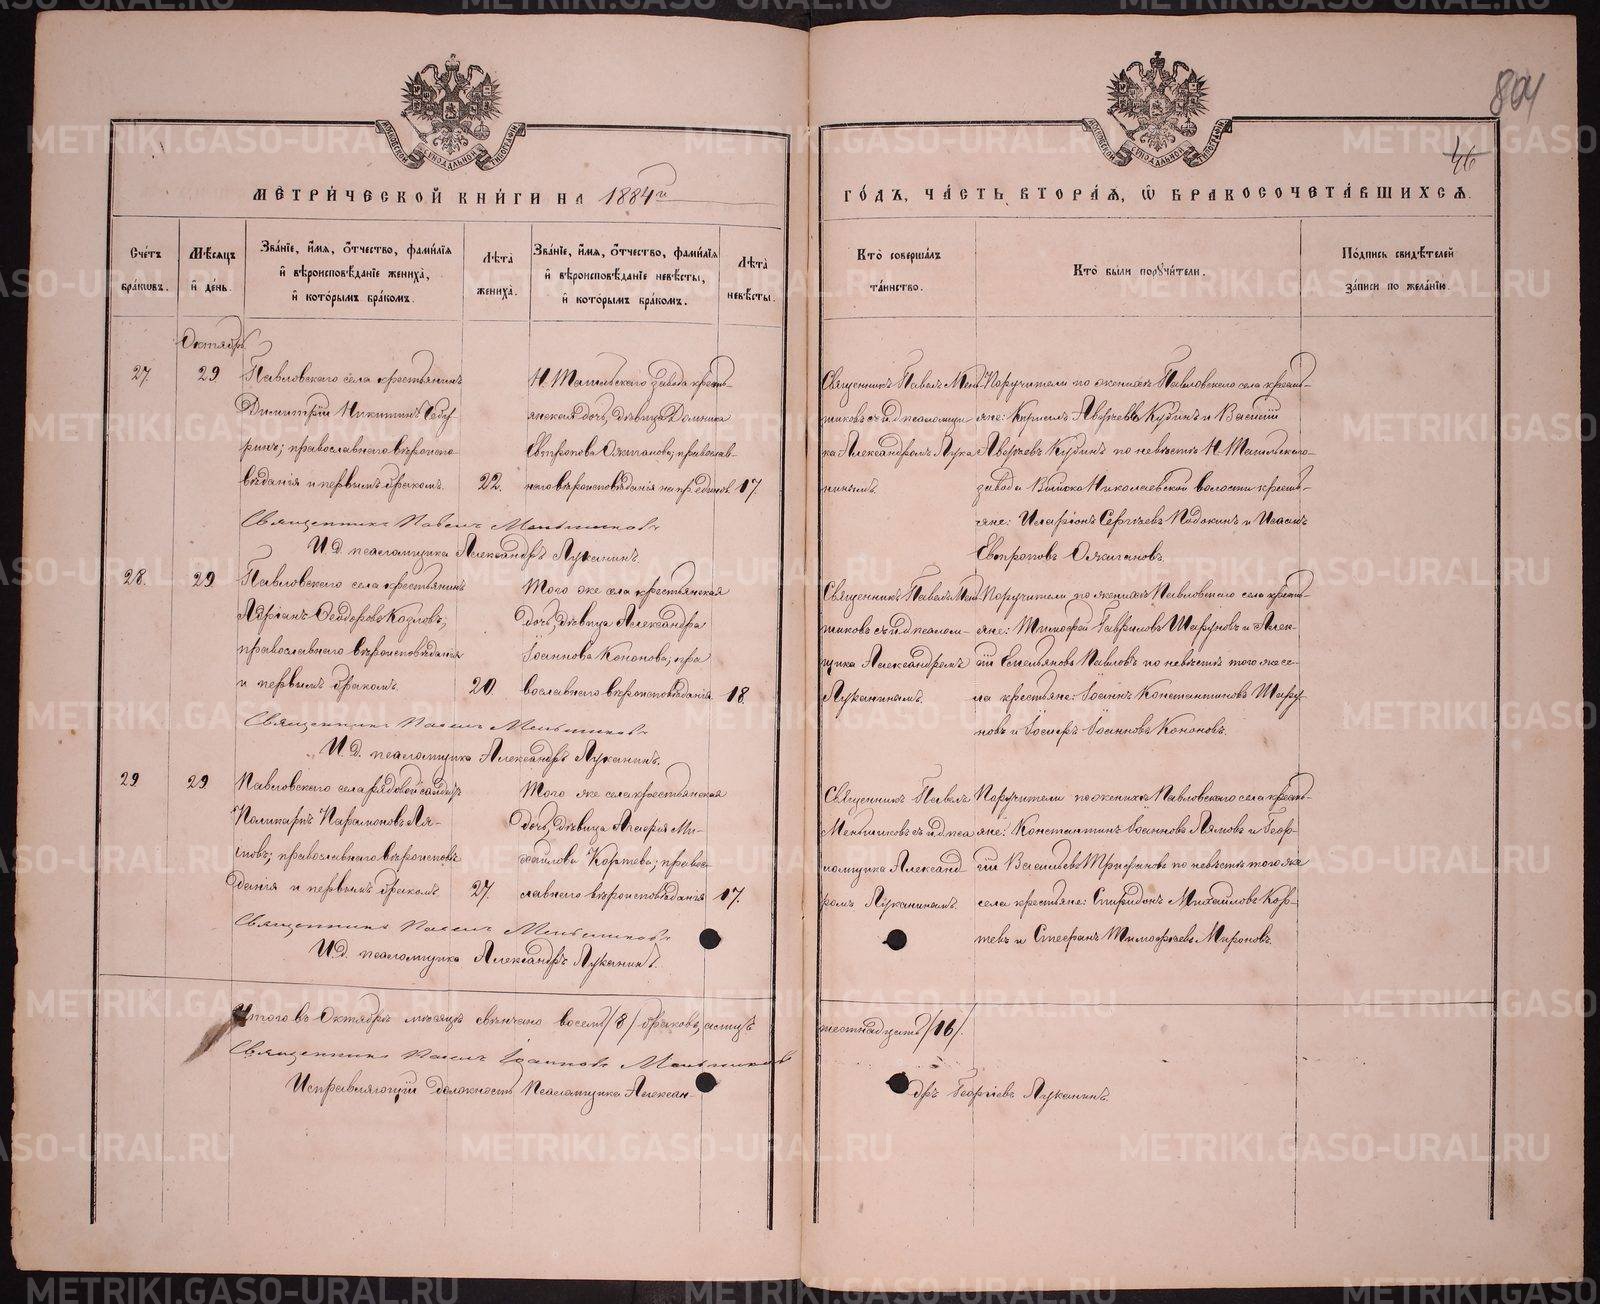 804
46
МОСКОВСКОЙ СУНОДАЛЬНОЙ ТИПОГРАФІИ
МОСКОВСКОЙ СУНОДАЛЬНОЙ ТИПОГРАФІИ
МЕТРИЧЕСКОЙ КНИГИ НА 1884й
ГОДЪ, ЧАСТЬ ВТОРАЯ, Ѡ БРАКОСОЧЕТАВШИХСЯ.
Счетъ браковъ.
Мѣсяцъ и день.
Званіе, имя, отчество, фамилія и вѣроисповѣданіе жениха, и которымъ бракомъ.
Лѣта жениха.
Званіе, имя, отчество, фамилія и вѣроисповѣданіе невѣсты, и которымъ бракомъ.
Лѣта невѣсты.
Кто совершалъ таинство.
Кто были поручители.
Подпись свидѣтелей записи по желанію.
Октябрь
27.
29
Павловскаго села крестьянинъ
Димитрій Никитинъ
православнаго вѣроиспо-
вѣданія и первымъ бракомъ.
22.
Н. Тагильскаго завода кресть-
янская дочь, дѣвица Домника
Евтропова Ожиганова; православ-
наго вѣроисповѣданія
17.
Священникъ Павелъ Мень-
шиковъ съ и. д. псаломщи-
ка Александромъ Лука-
нинымъ.
Поручители по женихѣ Павловскаго села кресть-
яне: Кириллъ Аверкіевъ Кудинъ и Василій
Аверкіевъ Кудинъ по невѣстѣ Н. Тагильскаго
завода Выйско Николаевской волости кресть-
яне: Иларіонъ Сергѣевъ и
Евтроповъ Ожигановъ.
Священникъ Павелъ Меньшиковъ
И. Д. псаломщика Александръ Луканинъ.
28.
29
Павловскаго села крестьянинъ
Адріанъ Ѳеодоровъ Козловъ;
православнаго вѣроисповѣданія
и первымъ бракомъ.
20.
Того же села крестьянская
дочь, дѣвица Александра
Іоаннова Кононова; пра
вославнаго вѣроисповѣданія
18.
Священникъ Павелъ Мень-
шиковъ съ и. д. псалом-
щика Александромъ
Луканинымъ.
Поручители по женихѣ Павловскаго села кресть-
яне: Тимофей Гавриловъ Шаруновъ и Алек-
сій Емельяновъ Павловъ по невѣстѣ того же се-
ла крестьяне: Іоаннъ Константиновъ Шару
новъ и Іосифъ Іоанновъ Кононовъ.
Священникъ Павелъ Меньшиковъ
И. Д. псаломщика Александръ Луканинъ.
29
29
Павловскаго села рядовой солдатъ
Поликарпъ Парамоновъ Ля-
повъ; православнаго вѣроисповѣ
данія и первымъ бракомъ
27.
Того же села крестьянская
дочь, дѣвица Агафія Ми-
хайлова Кортева; право-
славнаго вѣроисповѣданія
17.
Священникъ Павелъ
Меньшиковъ съ и. д. пса
ломщика Александ-
ромъ Луканинымъ.
Поручители по женихѣ Павловскаго села кресть-
яне: Константинъ Іоанновъ Ляповъ и Геор-
гій Васильевъ Трифановъ по невѣстѣ того же
села крестьяне: Спиридонъ Михайловъ Кор-
тевъ и Стефанъ Тимофѣевъ Мироновъ.
Священникъ Павелъ Меньшиковъ
И. Д. псаломщика Александръ Луканинъ.
Итого въ Октябрѣ мѣсяцѣ свѣнчано восемь /8/ браковъ, а лицъ
шестнадцать /16/.
Священникъ Павелъ Іоанновъ Меньшиковъ
Исправляющій должность Псаломщика Алексан-
дръ Георгіевъ Луканинъ.
METRIKI.GASO-URAL.RU